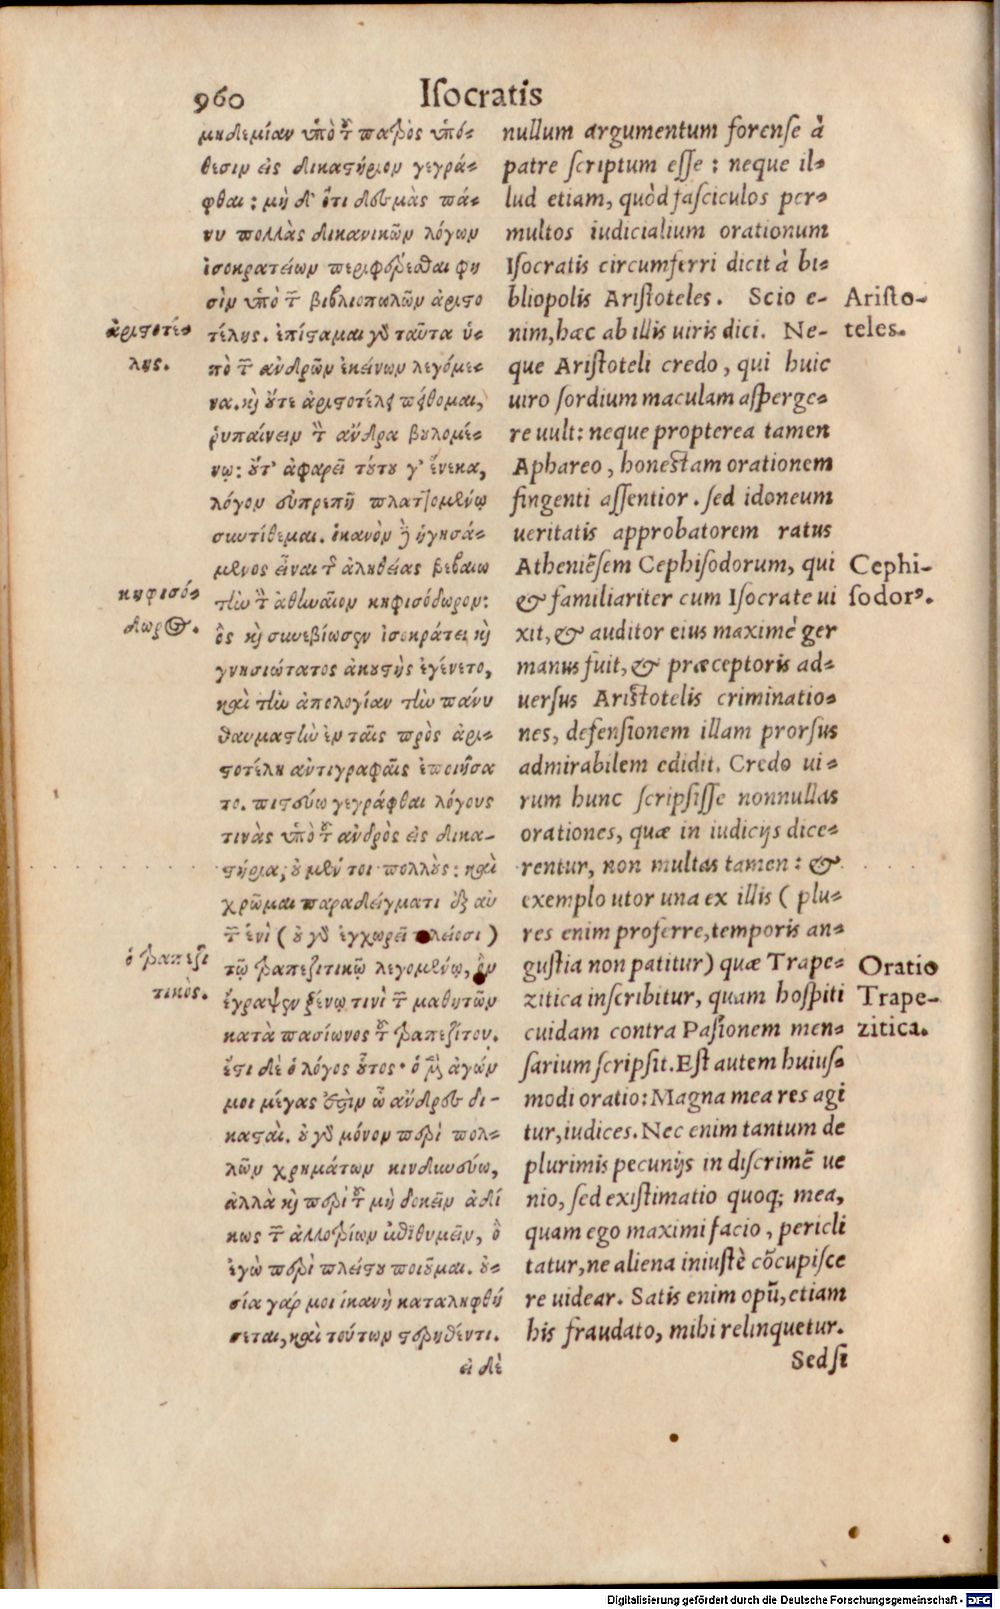 960
Iſocratis
μηδεμίαν ὑπὸ τ͂ παρὸς ὑπό-
θεσιν εἰς δικαστήριον γεγρά-
φθαι: μὴ δ' ὅτι δεσμὰς πά-
νυ πολλὰς δικανικῶν λόγων
ἰσοκρατείων περιφέρεσθαι φη
σὶν ὑπὸ τ͂ βιβλιοπωλῶν ἀριστο
τέλης. ἐπίσταμαι γὸ ταῦτα ὑ-
πὸ τ͂ ἀνδρῶν ἐκείνων λεγόμε-
να. κὴ ὄτε ἀριστοτέλει πείθομαι,
ῥυπαίνειν τ̀ ἄνδρα βυλομέ-
νῳ: ὄτ' ἀφαρεῖ τότυ γ' ἕνεκα,
λόγον εὐπρεπῆ πλαττομένῳ
συντίθεμαι. ἱκανὸν ὃ ἡγησά-
μενος εἶναι τ͂ ἀληθείας βεβαιω
τὴν τ̀ ἀθηναῖον κηφισόδωρον:
ὃς κὴ συνεβίωσεν ἰσοκράτει κὴ
γνησιώτατος ἀκυστὴς ἐγένετο,
καὶ τὴν ἀπολογίαν τὴν πάνυ
θαυμαστὴν ἐν ταῖς πρὸς ἀρι-
στοτέλη αντιγραφαῖς ἐποιήσα
το. πιστεύω γεγράφθαι λόγους
τινὰς ὑπὸ τ͂ ανδρὸς εἰς δικα-
στήρια, ὀ μέν τοι πολλύς: καὶ
χρῶμαι παραδείγματι ἐξ αὐ
τ͂ ἑνὶ (ὀ γὸ ἐγχωρεῖ πλείοσι)
τῷ τραπεζιτικῷ λεγομένῳ, ὃν
ἔγραψεν ξένῳ τινὶ τ͂ μαθητῶν
κατὰ πασίωνος τ͂ τραπεζίτου.
ἔστι δὲ ὁ λόγος ὅτος· ὁ μ̀ ἀγών
μοι μέγας ἐστὶν ὦ ἄνδρες δι-
κασταὶ. ὀ γὸ μόνον περὶ πολ-
λῶν χρημάτων κινδυνεύω,
ἀλλὰ κὴ περὶ τ͂ μὴ δοκεῖν ἀδί
κως τ͂ ἀλλοτρίων ἐπιθυμεῖν, ὃ
ἐγὼ περὶ πλείστυ ποιοῦμαι. ὀ-
σία γάρ μοι ἱκανὴ καταληφθή
σεται, καὶ τούτων στερηθέντι.
εἰ δὲ
ἀριστοτέ-
λης.
κηφισό-
δωρος.
ὁ τραπεζι
τικὸς.
nullum argumentum forenſe à
patre ſcriptum eſſe: neque il-
lud etiam, quòd faſciculos per-
multos iudicialium orationum
Iſocratis circumferri dicit à bi-
bliopolis Ariſtoteles. Scio e-
nim, hæc ab illis uiris dici. Ne-
que Ariſtoteli credo, qui huic
uiro ſordium maculam aſperge-
re uult: neque propterea tamen
Aphareo, honeſtam orationem
fingenti aſſentior. ſed idoneum
ueritatis approbatorem ratus
Atheniẽſem Cephiſodorum, qui
& familiariter cum Iſocrate ui
xit, & auditor eius maximè ger
manus fuit, & præceptoris ad-
uerſus Ariſtotelis criminatio-
nes, defenſionem illam prorſus
admirabilem edidit. Credo ui-
rum hunc ſcripſiſſe nonnullas
orationes, quæ in iudicijs dice-
rentur, non multas tamen: &
exemplo utor una ex illis (plu-
res enim proferre, temporis an-
guſtia non patitur) quæ Trape-
zitica inſcribitur, quam hoſpiti
cuidam contra Paſionem men-
ſarium ſcripſit. Eſt autem huiuſ-
modi oratio: Magna mea res agi
tur, iudices. Nec enim tantum de
plurimis pecunijs in diſcrimẽ ue
nio, ſed exiſtimatio quoq; mea,
quam ego maximi facio, pericli
tatur, ne aliena iniuſtè cõcupiſce
re uidear. Satis enim opũ, etiam
his fraudato, mihi relinquetur.
Sed ſi
Ariſto-
teles.
Cephi-
ſodorꝰ.
Oratio
Trape-
zitica.
Digitalisierung gefördert durch die Deutsche Forschungsgemeinschaft - DFG